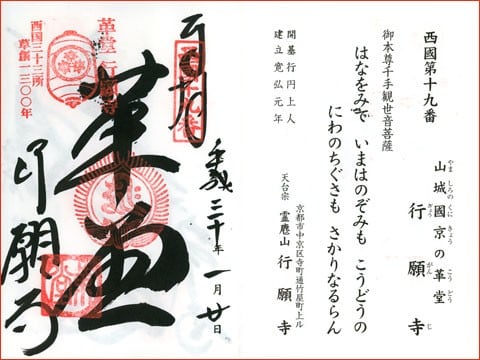 西國第十九番
山城國京の革堂
やましろのくにきょうこうどう
行願寺
ぎょうがんじ
御本尊千手観世音菩薩
はなをみで いまはのぞみも こうどうの
にわのちぐさも さかりなるらん
開基行円上人
建立寛弘元年
京都市中京区寺町通竹屋町上ル
天台宗 霊麀山 行願寺
平成三十年一月廿日
革堂
行願寺
革堂行願寺
西国三十三所
草創一三〇〇年